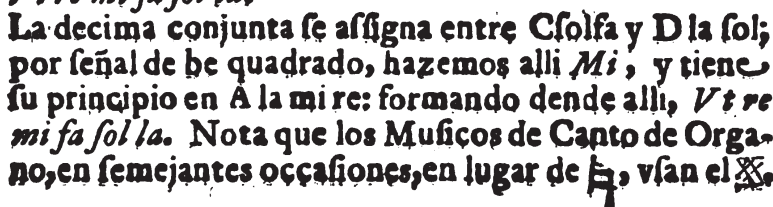 Vt re mi fa sol la.
La decima conjunta ſe aſſigna entre Cſolfa y D la ſol;
por ſeñal de be quadrado, hazemos alli Mi, y tiene
ſu principio en A la mi re: formando dende alli, Vt re
mi fa ſol la. Nota que los Muſicos de Canto de Orga-
no, en ſemejantes occaſiones, en lugar de ♮, vſan el 𝄪.